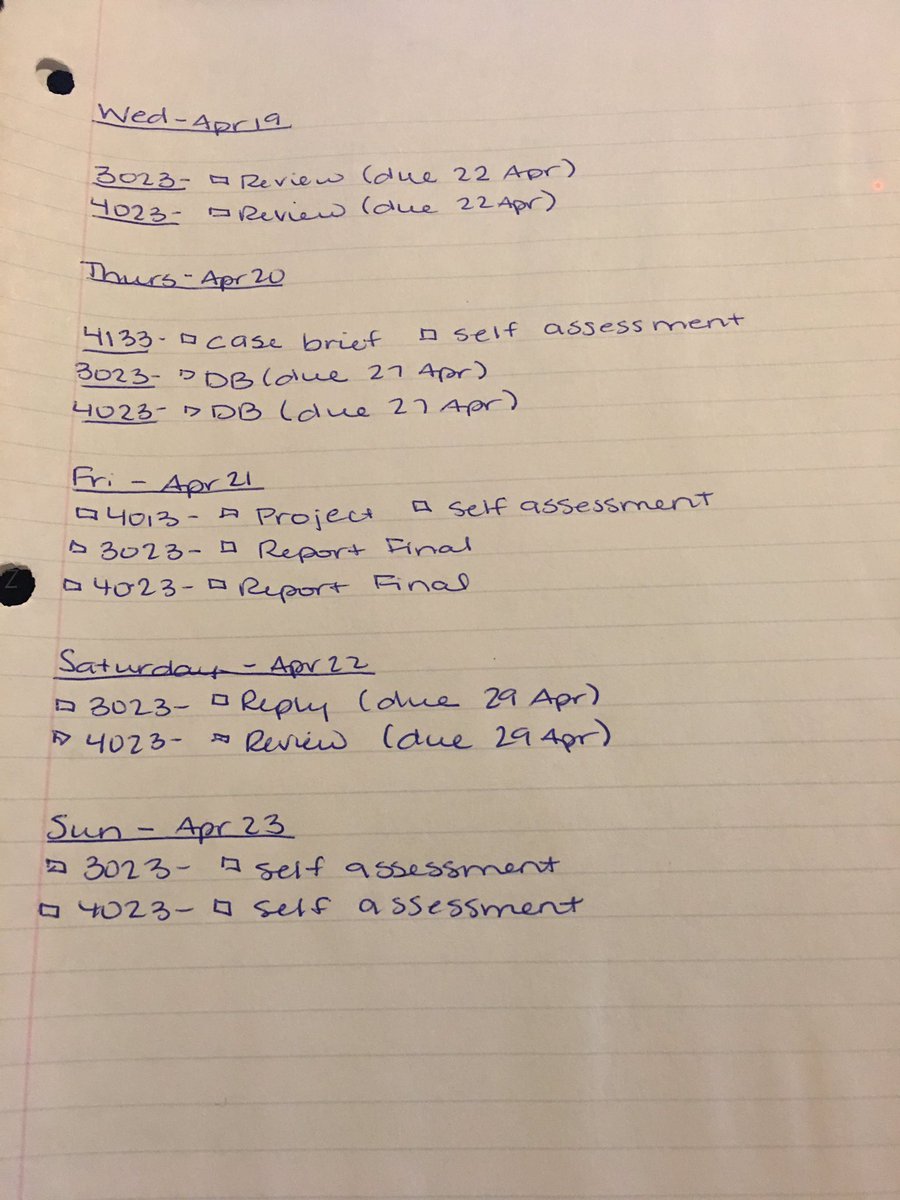 Wed - Apr 19
3023- □ Review (due 22 Apr)
4023- □ Review (due 22 Apr)
Thurs - Apr 20
4133- □ case brief □ self assessment
3023- □ DB (due 27 Apr)
4023- □ DB (due 27 Apr)
Fri - Apr 21
□ 4013- □ Project □ self assessment
□ 3023- □ Report Final
□ 4023- □ Report Final
Saturday - Apr 22
□ 3023- □ Reply (due 29 Apr)
□ 4023- □ Review (due 29 Apr)
Sun - Apr 23
□ 3023- □ self assessment
□ 4023- □ self assessment